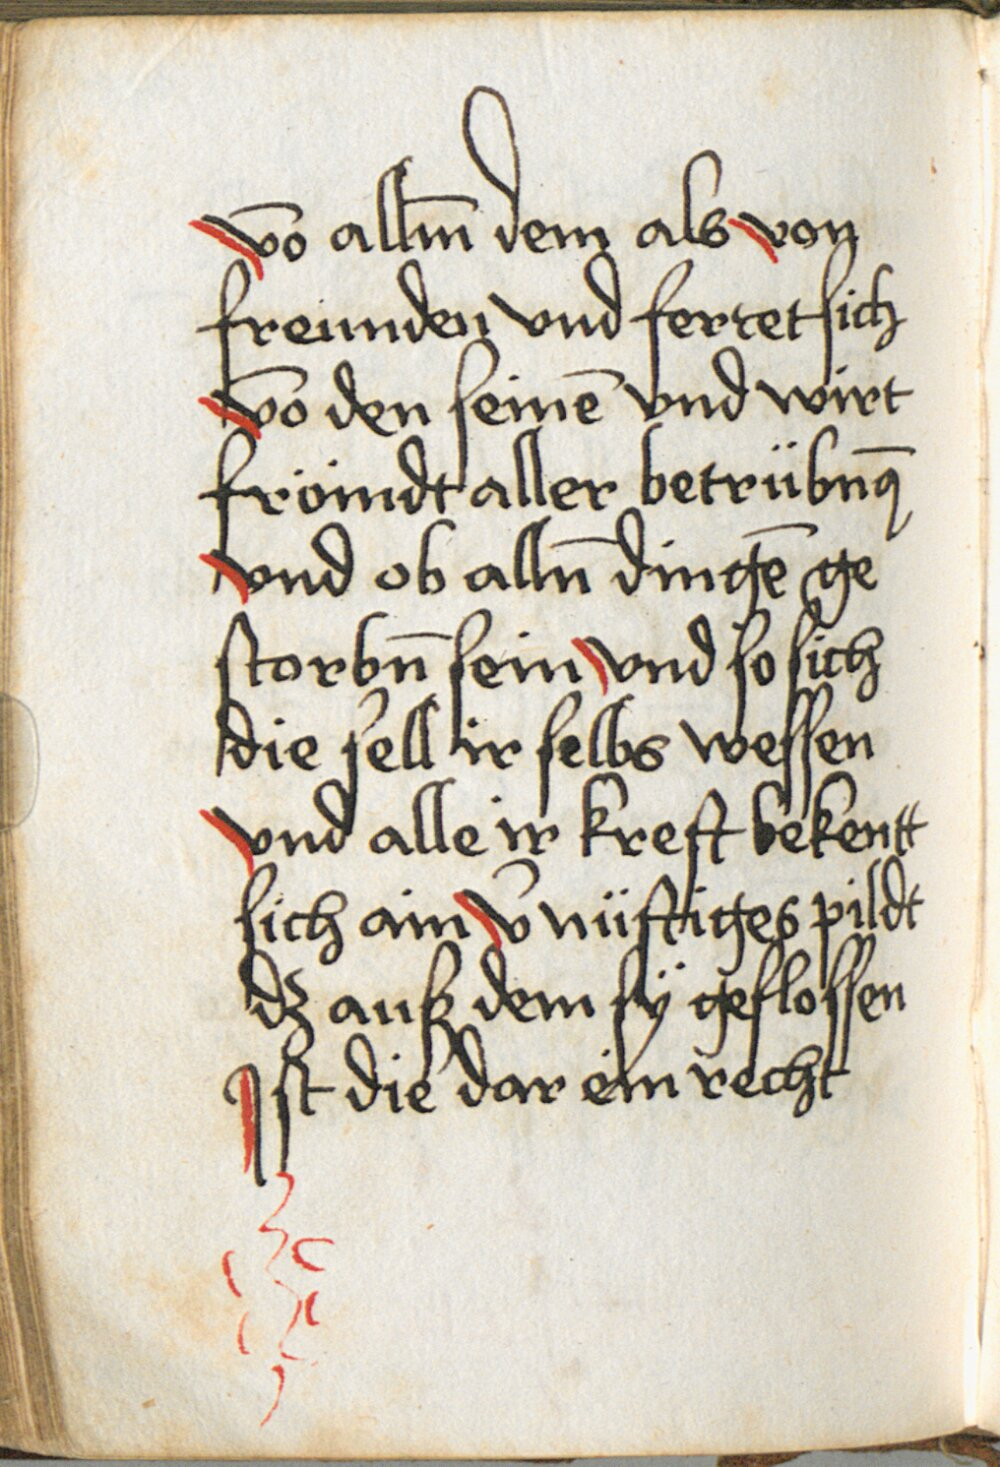 vō allm̄ dem als von
freunden vnd ferret sich
vō den seinē vnd wirt
frömdt aller betrübnq̄
vnd ob alln̄ dingē ge
storbn̄ sein vnd so sich
die sell ir selbs wessen
vnd alle ir kreft bekentt
sich ain v̄nüftiges pildt
dʒ auß dem sÿ geflossen
Ist die dar ein recht